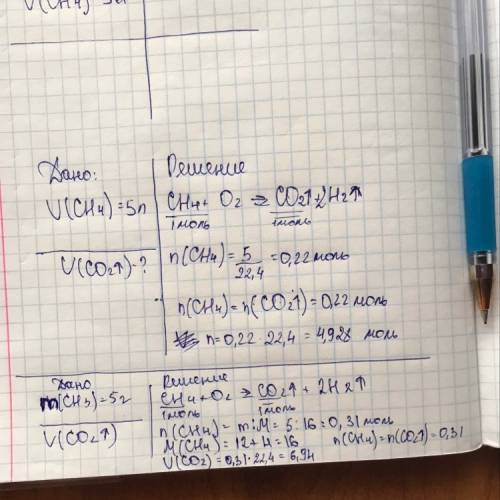 V(CH4) 5л
Дано:
V(CH4)=5л
V(CO2↑)-?
Решение
CH4+ O2 => CO2↑+2H2↑
1моль 1моль
n(CH4)=5/22,4=0,22 моль
n(CH4)=n(CO2↑)=0,22 моль
n=0,22·22,4=4,928 моль
Дано
m(CH3)=5г
V(CO2↑)
Решение
CH4+O2 => CO2↑ + 2H2↑
1моль 1моль
n(CH4)= m:M= 5:16=0,31 моль
M(CH4)=12+4=16 n(CH4)=n(CO2↑)=0,31
V(CO2)=0,31·22,4=6,94